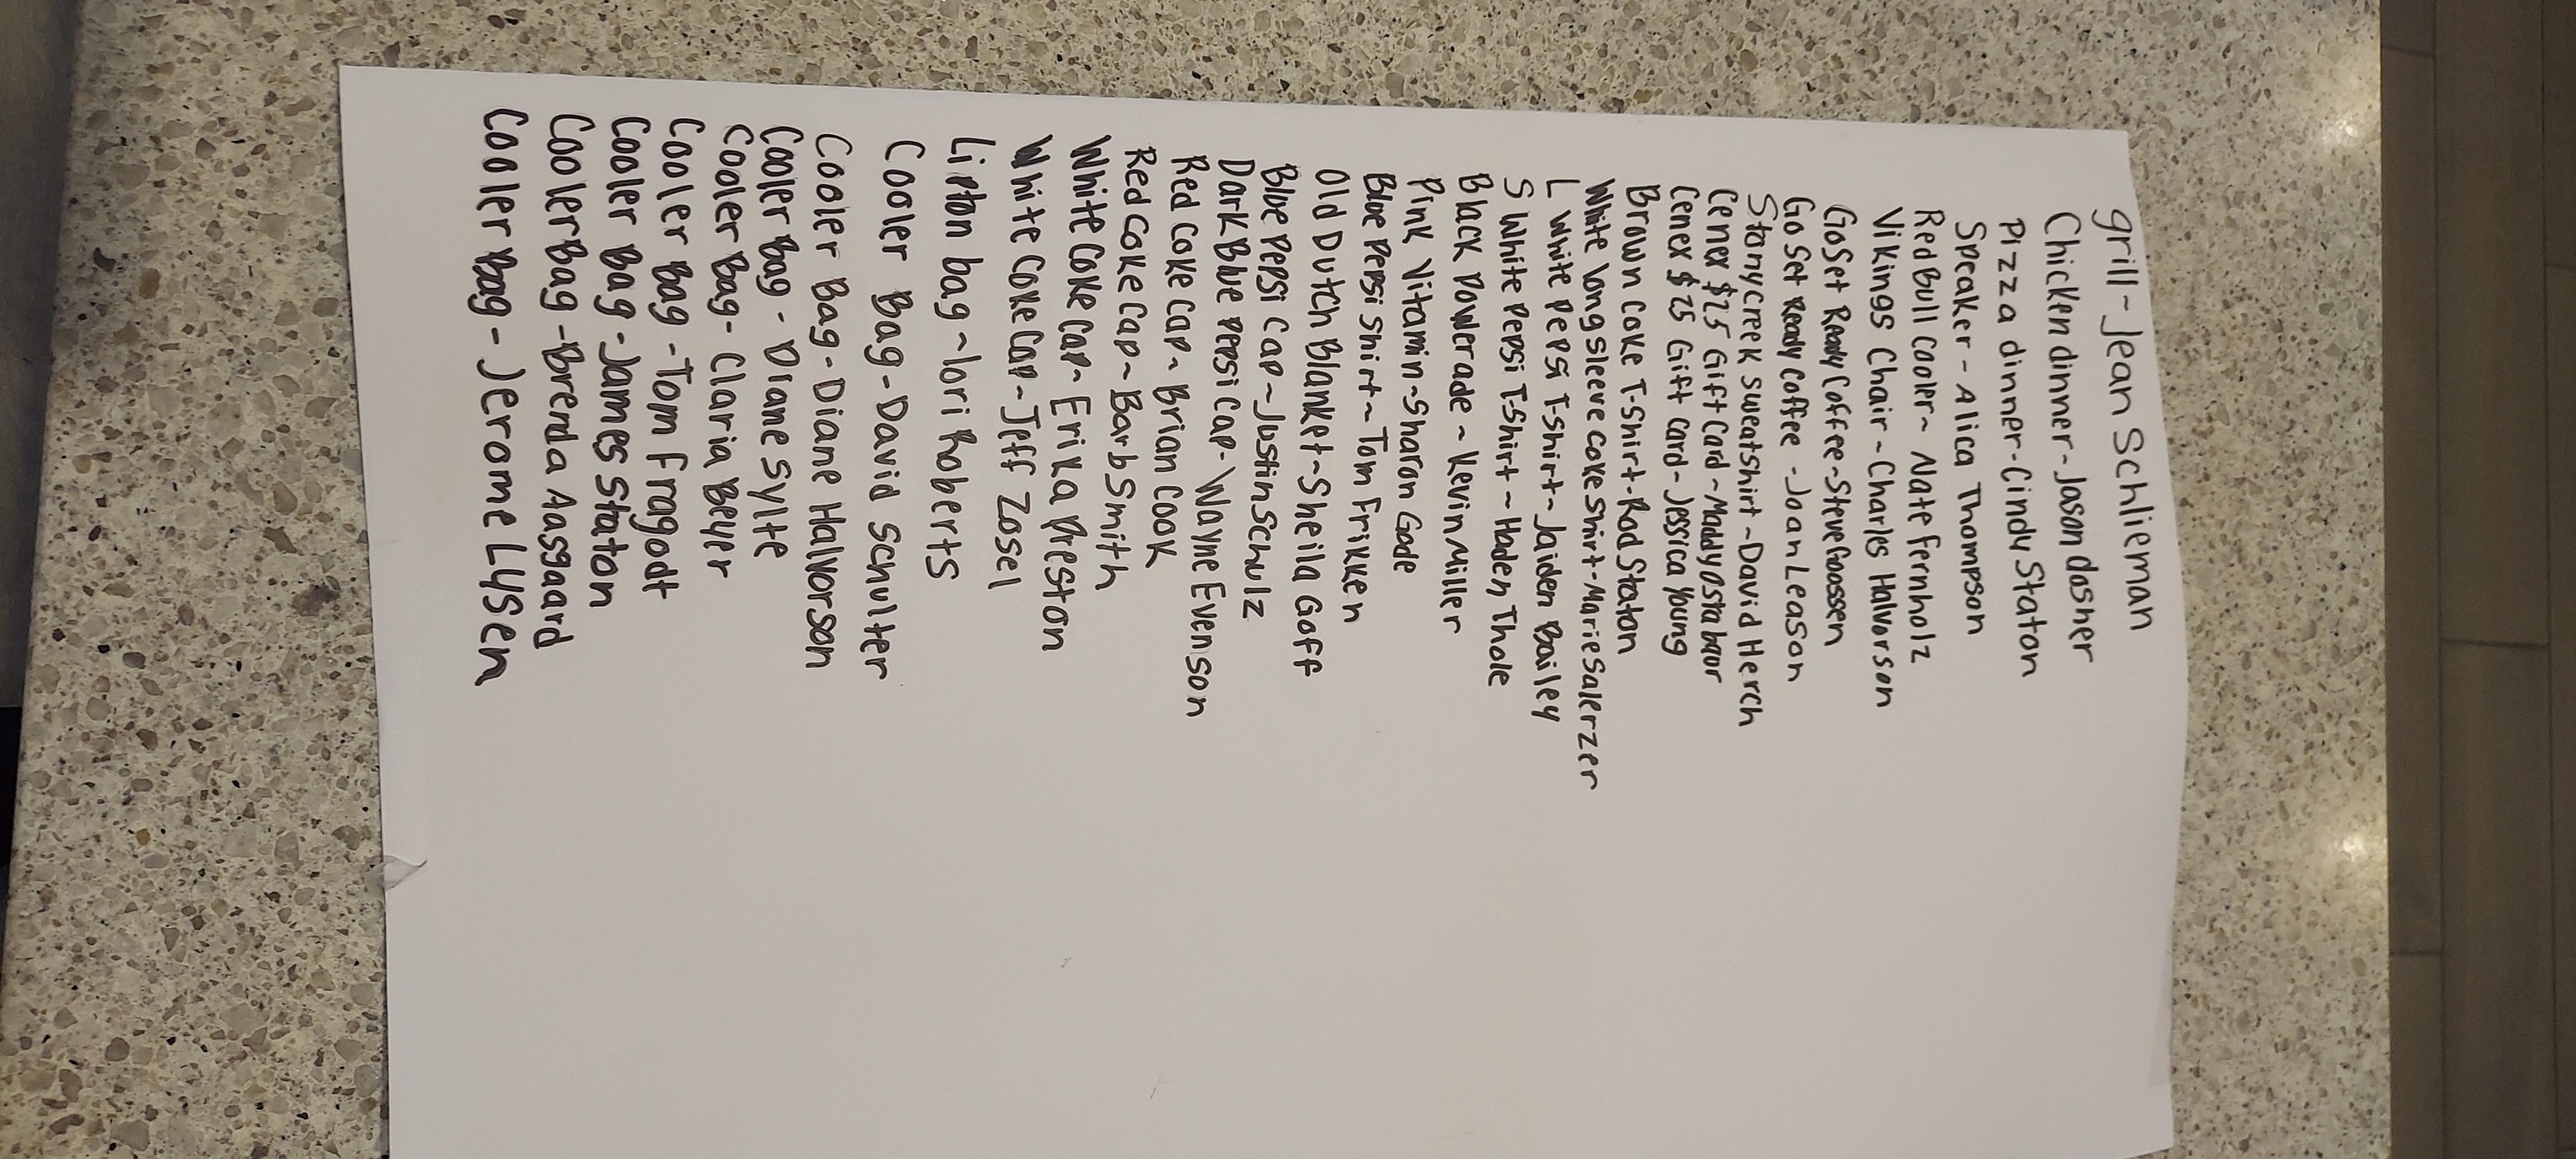 grill - Jean Schlieman
Chicken dinner - Jason dosher
Pizza dinner - Cindy Staton
Speaker - Alica Thompson
Red Bull cooler ~ Nate fernholz
Vikings Chair ~ Charles Halvorson
Go Set Ready Coffee ~ Steve Goossen
Go Set Ready Coffee - Joan Leason
Stony Creek sweatshirt ~ David Herch
Cenex $25 Gift Card ~ Maddy
Cenex $25 Gift card - Jessica Young
Brown Coke T-Shirt - Rod Staton
White long sleeve coke shirt - Marie Salerzer
L White Pepsi T-shirt ~ Jaiden Bailey
S White Pepsi T-Shirt ~ Haden Thole
Black Powerade ~ Kevin Miller
Pink Vitamin - Sharon Gade
Blue Pepsi Shirt ~ Tom Frikken
Old Dutch Blanket ~ Sheila Goff
Blue Pepsi Cap ~ Justin Schulz
Dark Blue Pepsi Cap - Wayne Evenson
Red Coke Cap ~ Brian Cook
Red Coke Cap ~ Barb Smith
White Coke Cap ~ Erika Preston
White Coke Cap ~ Jeff Zosel
Lipton bag ~ lori Roberts
Cooler Bag - David Schulter
Cooler Bag - Diane Halvorson
Cooler Bag - Diane Sylte
Cooler Bag - Claria Beyer
Cooler Bag - Tom Fragodt
Cooler Bag - James Staton
Cooler Bag - Brenda Aasgaard
Cooler Bag - Jerome Lysen